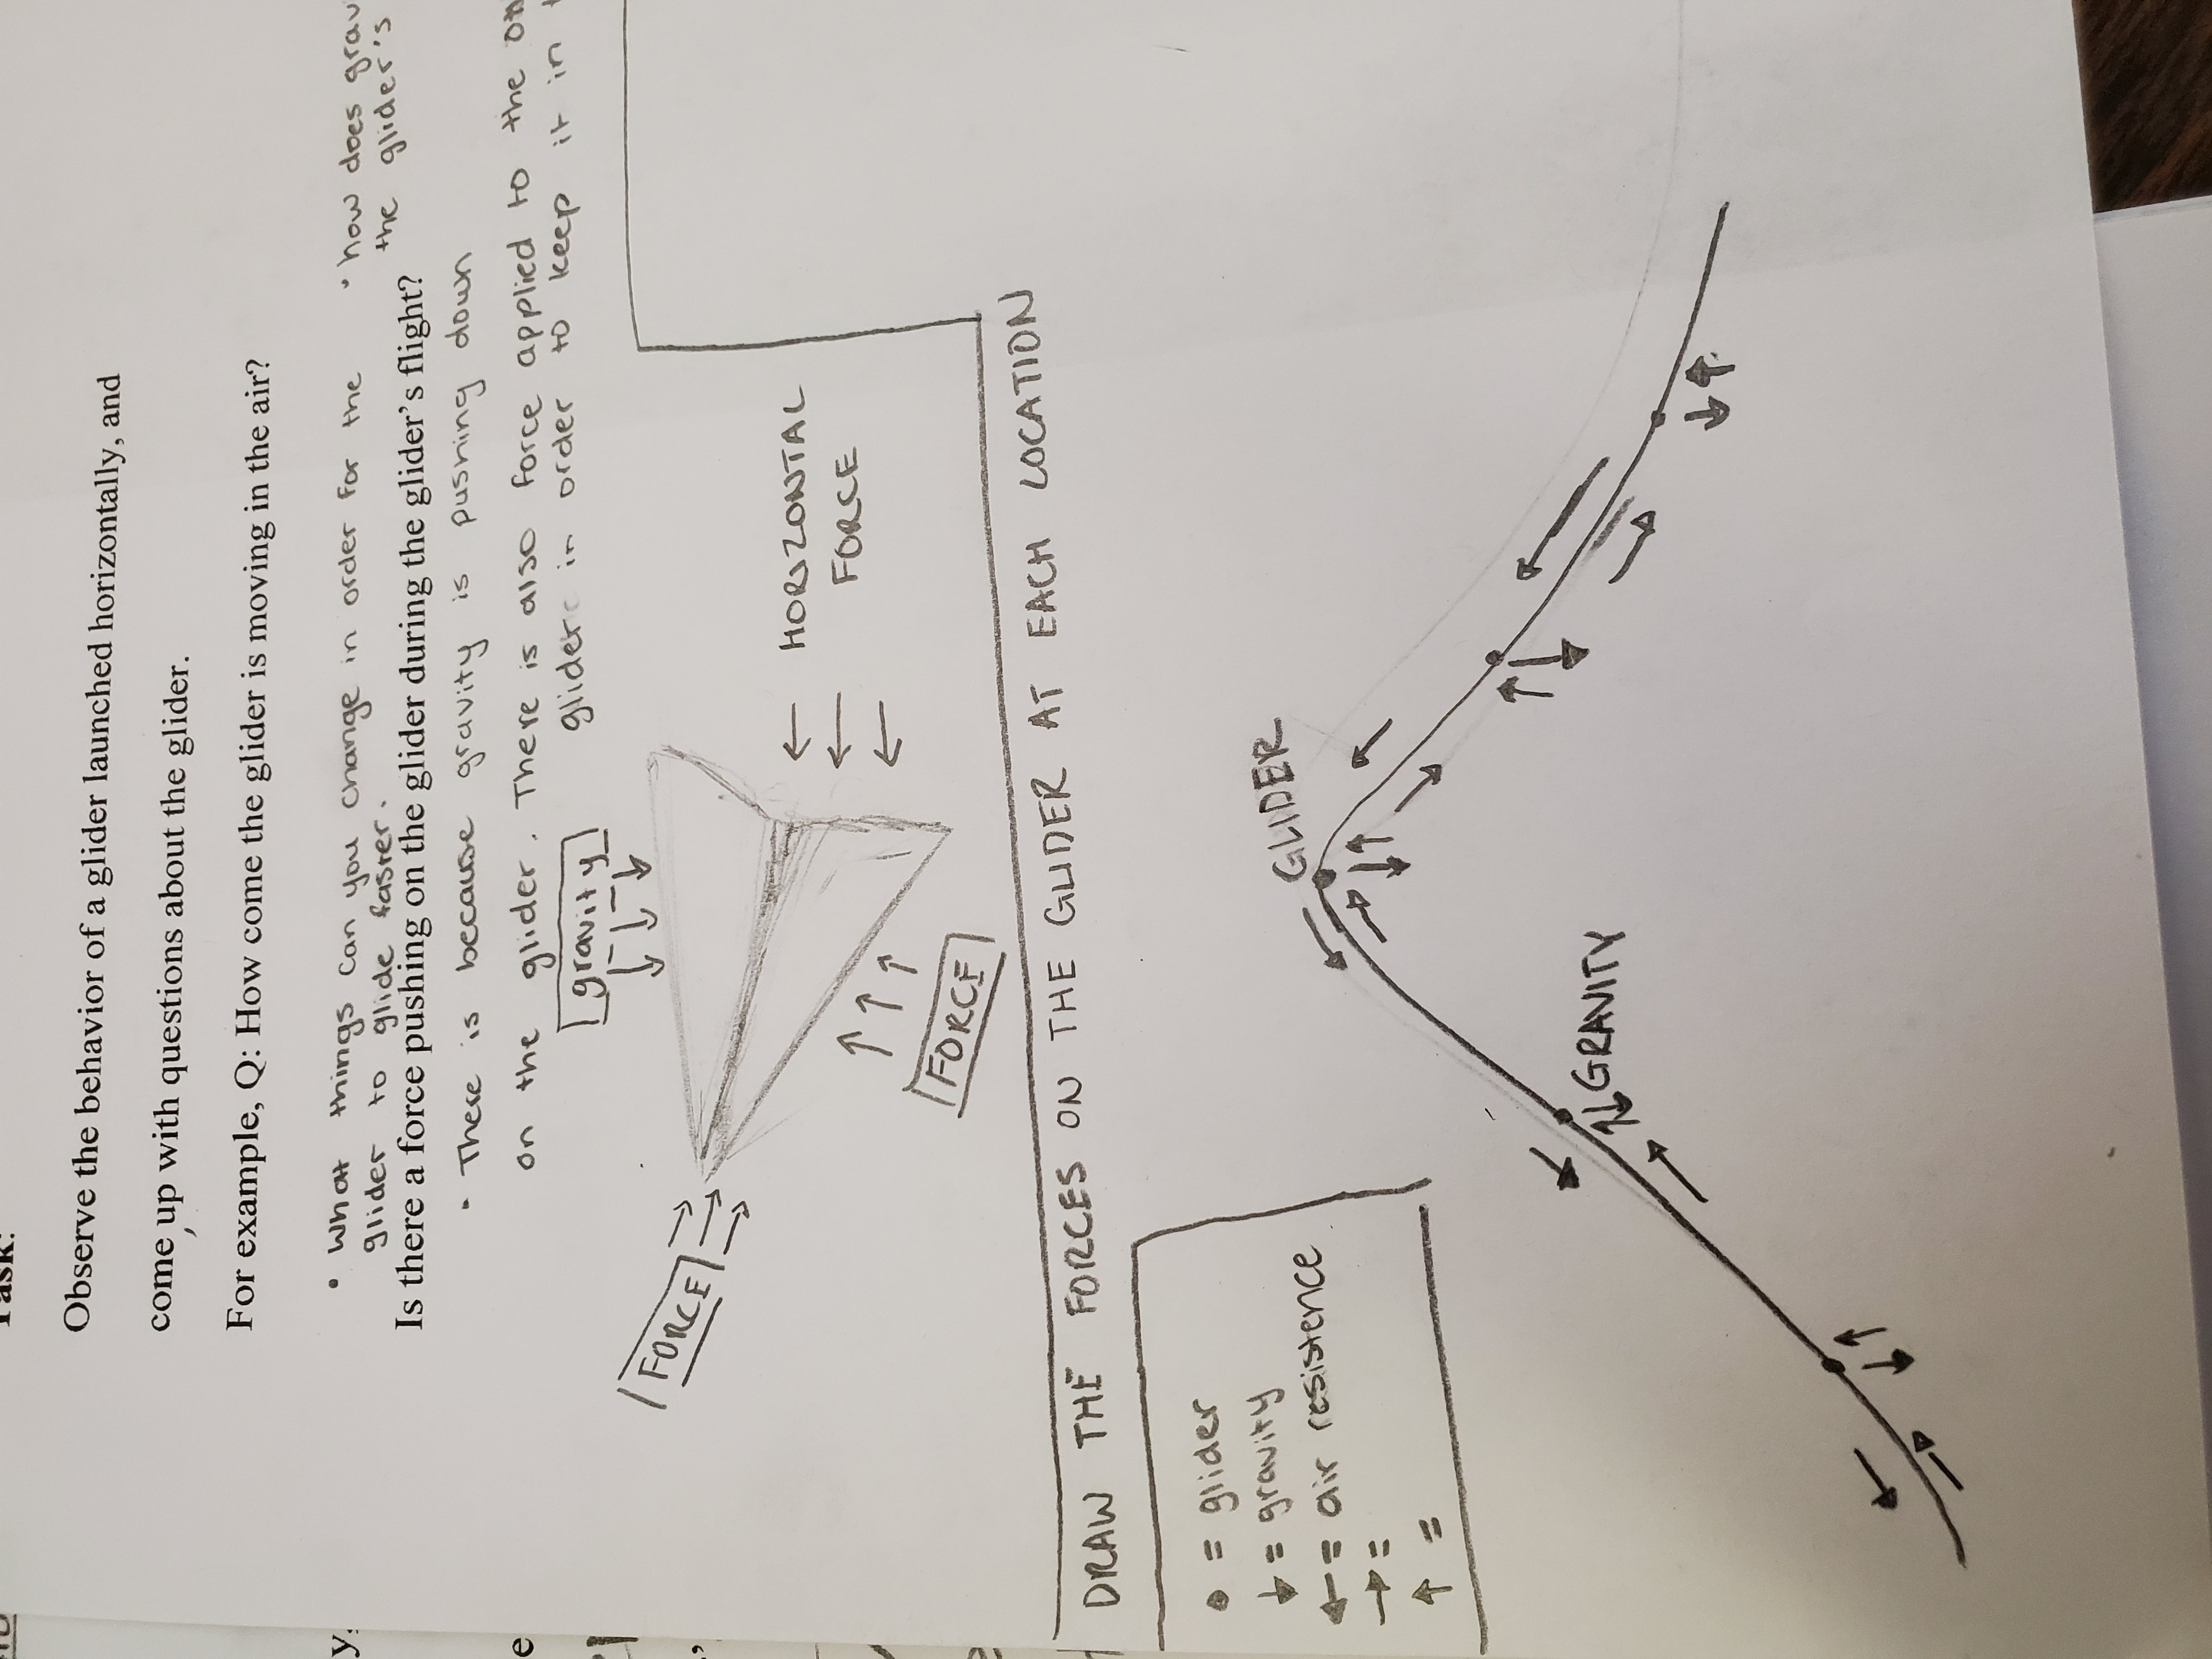 Task:
Observe the behavior of a glider launched horizontally, and
come up with questions about the glider.
For example, Q: How come the glider is moving in the air?
• What things can you change in order for the
glider to glide faster.
• how does grav
the glider's
Is there a force pushing on the glider during the glider's flight?
• There is because gravity is pushing down
on the glider. There is also force applied to the
glider in order to keep it in
gravity
FORCE
HORIZONTAL
FORCE
FORCE
DRAW THE FORCES ON THE GLIDER AT EACH LOCATION
• = glider
↓ = gravity
← = air resistence
→ =
↑ =
GLIDER
GRAVITY